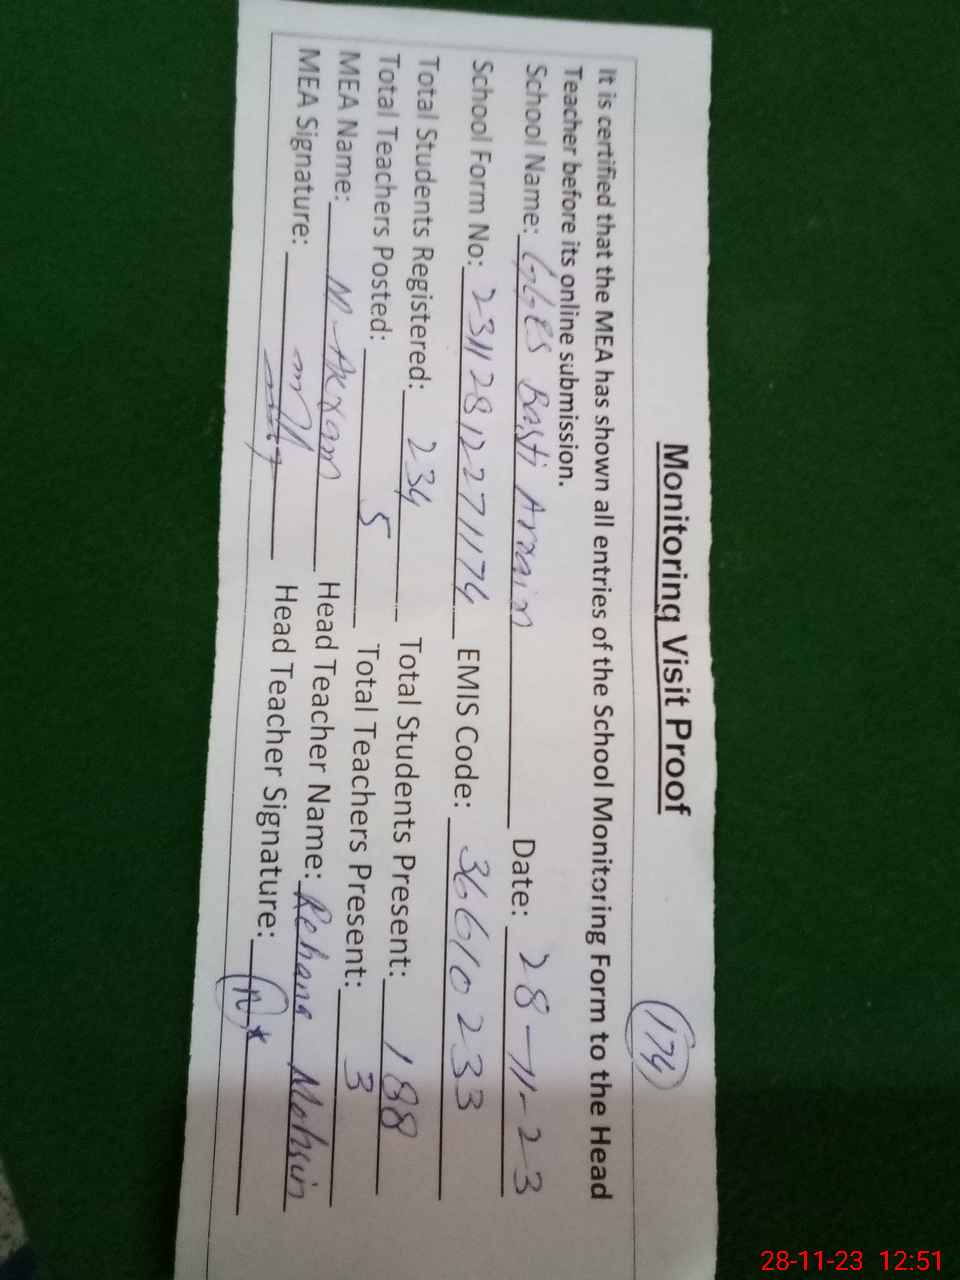 Monitoring Visit Proof
174
It is certified that the MEA has shown all entries of the School Monitoring Form to the Head
Teacher before its online submission.
School Name: GGES Basti Arain Date: 28-11-23
School Form No: 23112812271174 EMIS Code: 36610233
Total Students Registered: 234 Total Students Present: 188
Total Teachers Posted: 5 Total Teachers Present: 3
MEA Name: M-Akram Head Teacher Name: Rehana Mohsin
MEA Signature: Head Teacher Signature:
28-11-23 12:51